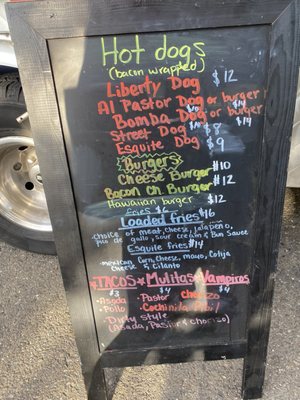 Hot dogs
(bacon wrapped)
Liberty Dog $12
Al Pastor Dog or burger
$14
Bomba Dog or burger
$14
Street Dog $8
Esquite Dog $9
Burgers
Cheese Burger $10
Bacon Ch. Burger $12
Hawaiian burger $12
Fries $6
Loaded fries $16
choice of meat, cheese, Jalapeño,
pico de gallo, sour cream & Bun Sauce
Esquite fries $14
-Mexican Corn, Cheese, mayo, Cotija
Cheese & Cilanto
TACOS Mulitas Vampiros
$3 $4 $4
•Asada •Pastor chorizo
•Pollo •Cochinita Pibil
-Dirty style
(Asada, Pastor & chorizo)